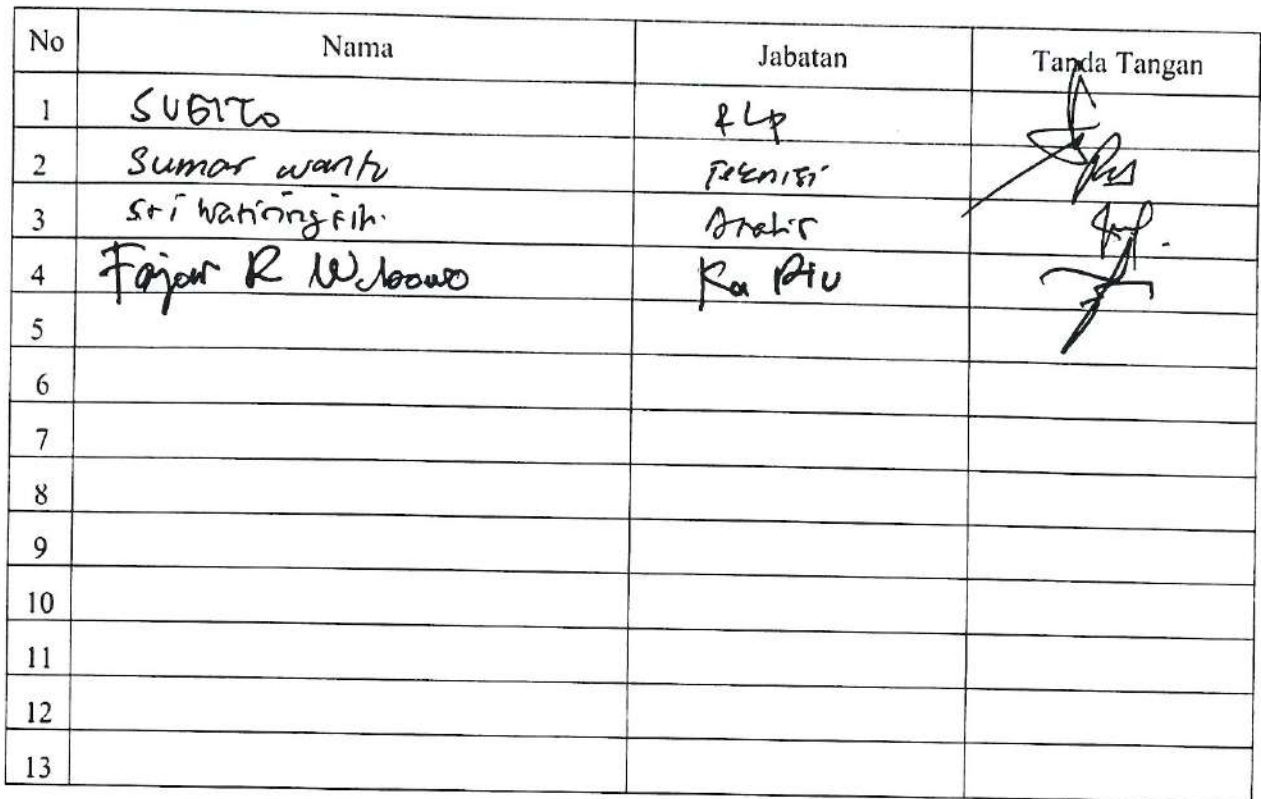 No Nama Jabatan Tanda Tangan
1 SUGITO
2 Sumar wanto Teknisi
3 Sri Analis
4 Fajar R Wibowo Ka
5
6
7
8
9
10
11
12
13